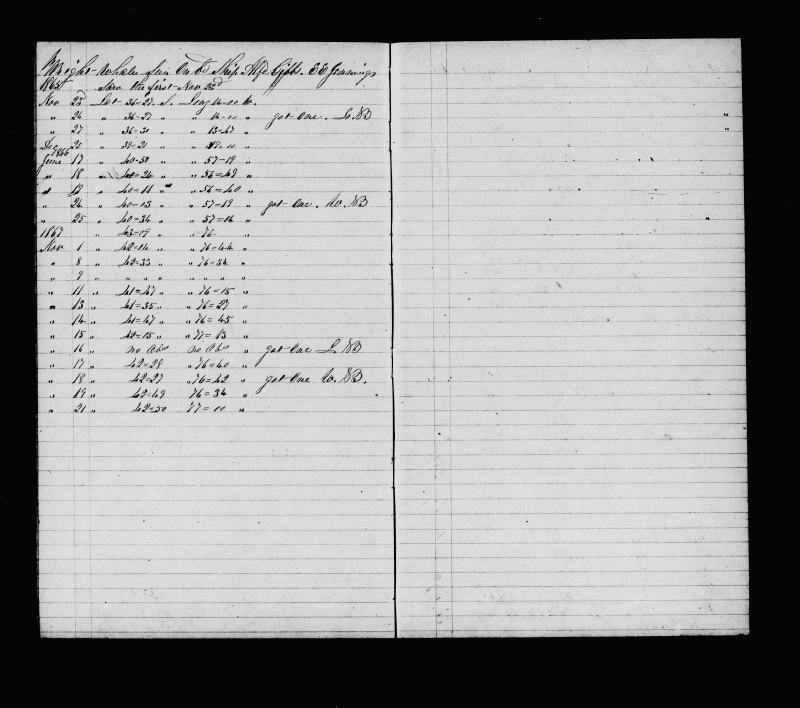 Right Whales Seen On Bd Ship Alfd Gibbs. E E Jennings
1865 Saw the first Nov 23d
Nov 23d Lat 36-27. S. Long 14-00 W.
" 26 " 36-27 " " 14-00 " got One. L. B
" 27 " 36-31 " " 13-47 "
Dec 25 " 39-21 " 00 "
1866
June 17 " 40-50 " " 57-19 "
" 18 " 40=24 " " 56=49 "
" 19 " 40=11 " " 56=40 "
" 24 " 40-03 " " 57-19 " got One. W. B
" 25 " 40=34 " " 57=04 "
1867 " 43-09 " " 76 "
Nov 1 " 42=04 " " 76=44 "
" 8 " 42=33 " " 76=34 "
" 9 " " " " " " "
" 11 " 41=47 " " 76=15 "
" 13 " 41=35 " " 76=27 "
" 14 " 41=47 " " 76=45 "
" 15 " 42=15 " " 77=13 "
" 16 " no Obs no Obs " got One L. B
" 17 " 42=28 " 76=40 "
" 18 " 42=27 " 76=42 " got One W. B.
" 19 " 42=49 76=34 "
" 21 " 42=50 77=00 "